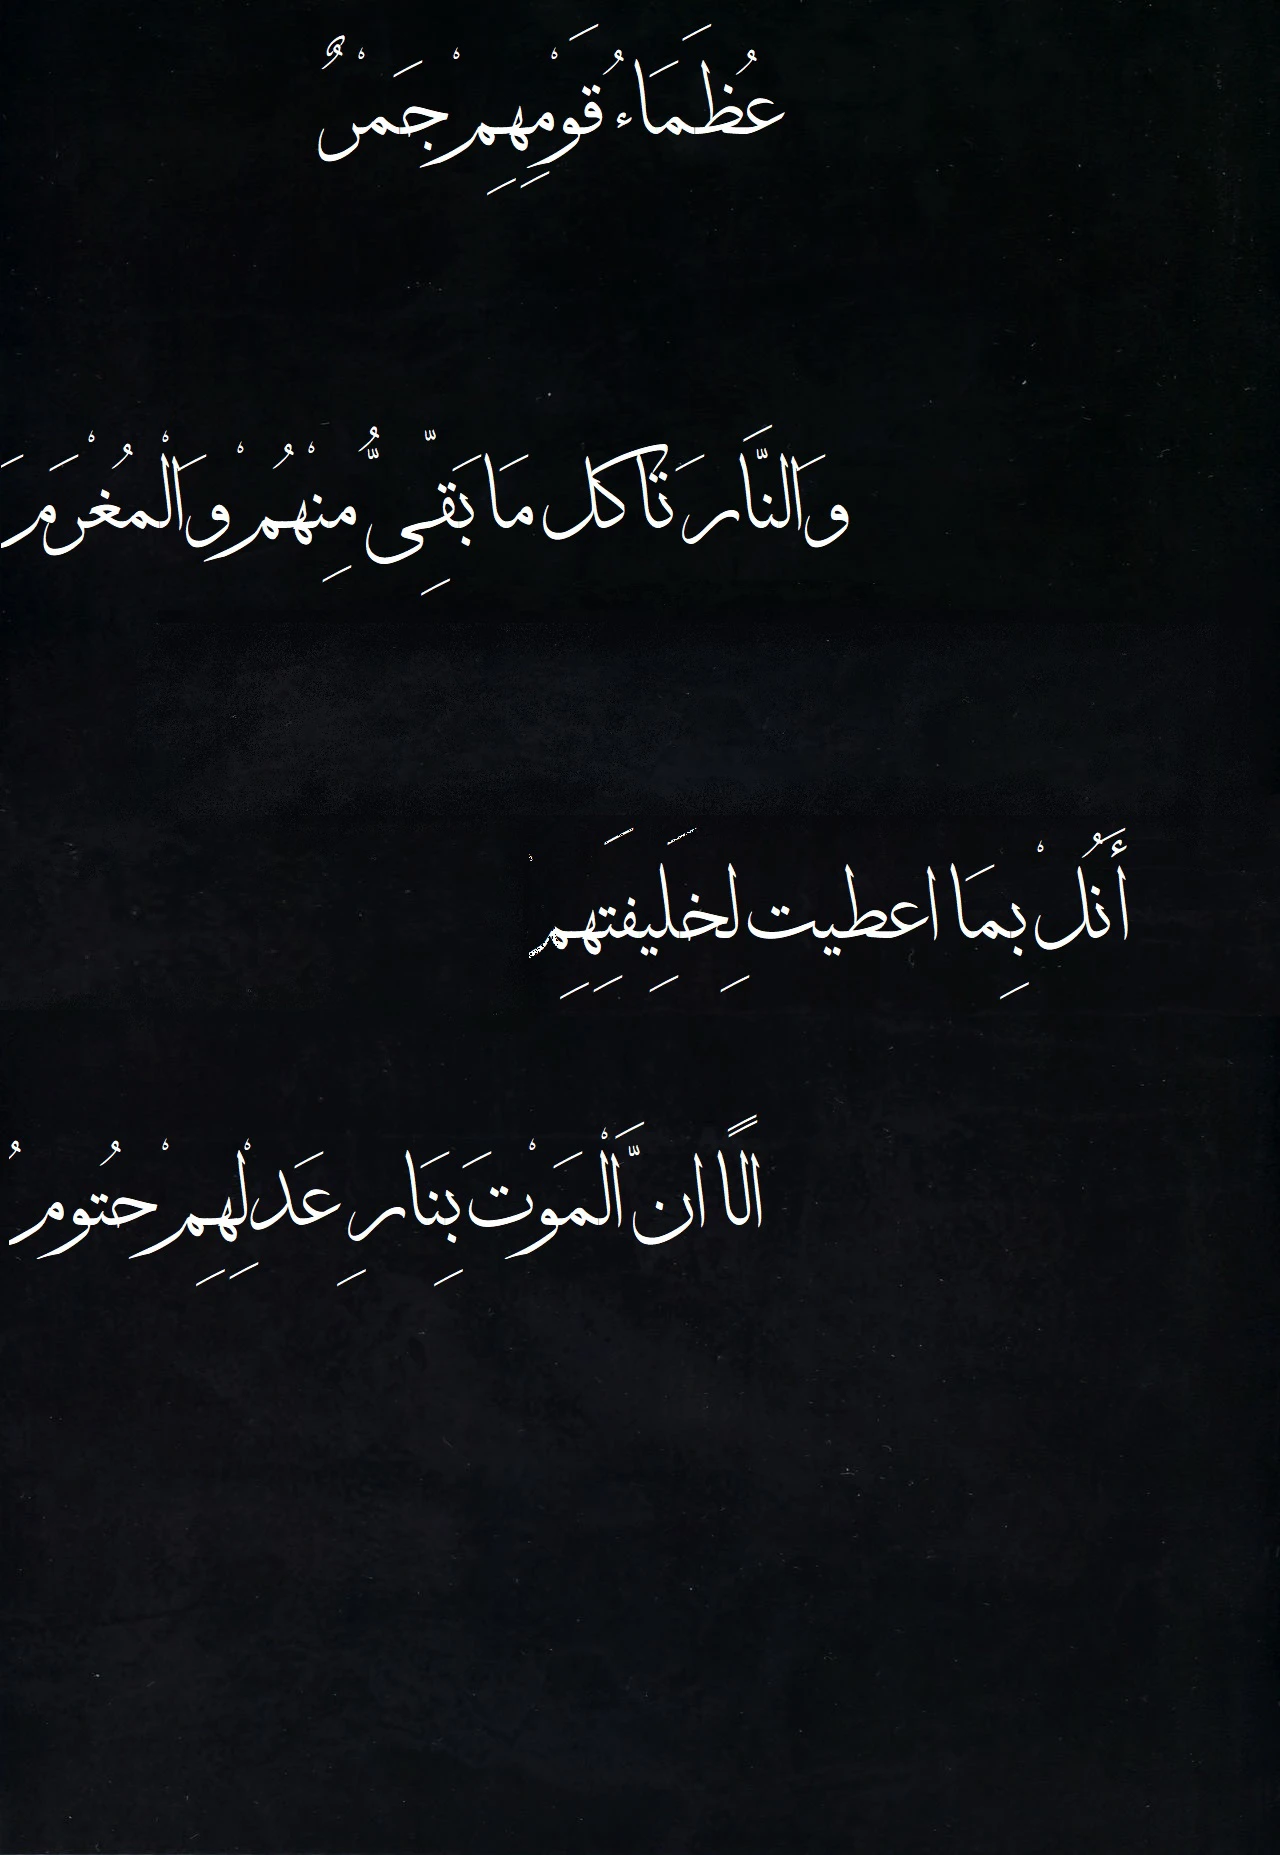 عُظَمَاءُ قَوْمِهِمْ جَمَرْۥٌ
وَالنَّارَ تَاكل مَا بَقِّىُّ مِنْهُمْ وَالْمُغْرَمَ
أَنُلْ بِمَا اعطيت لِخَلِيفَتِهِمْ
الًا ان َّالْمَوْتَ بِنَارِ عَدلْهِمْ حتُومُ